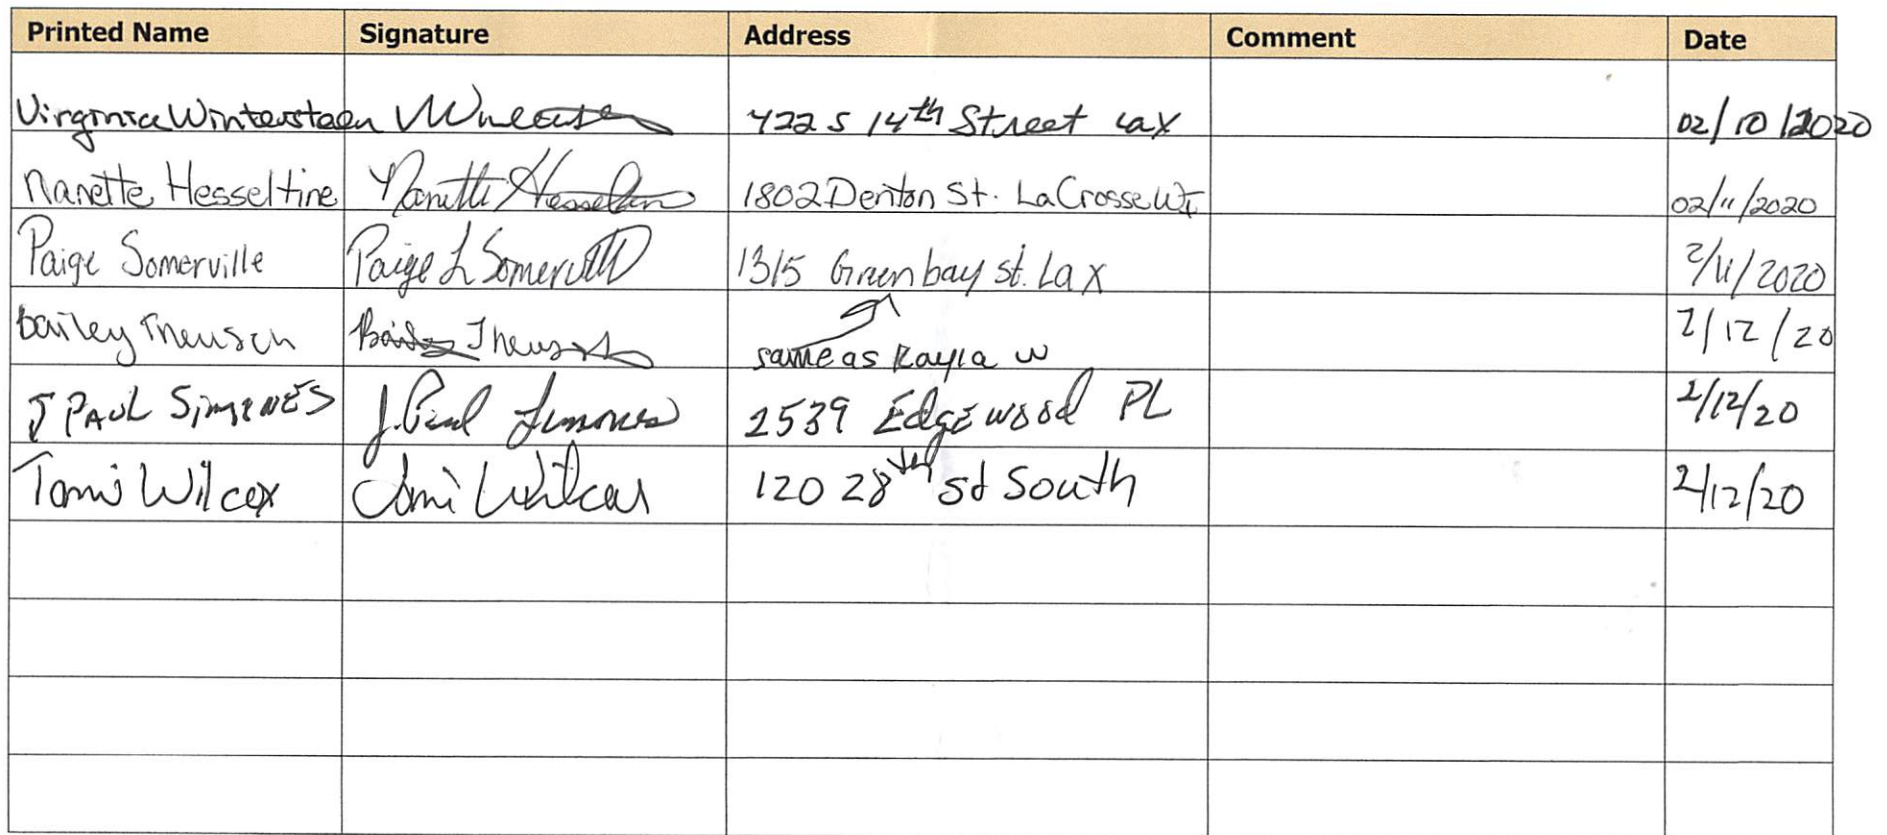 Printed Name Signature Address Comment Date
Virginia Wintersteen 422 S 14th Street Lax 02/10/2020
Nanette Hesseltine Nanette Hesseltine 1802 Denton St. LaCrosse WI 02/11/2020
Paige Somerville Paige L Somerville 1315 Green bay st. Lax 2/11/2020
bailey Theusch Bailey Theusch same as Kayla W 2/12/20
J PAUL SimENES J. Paul 2539 EdgEwood PL 2/12/20
Tami Wilcox Tami Wilcox 120 28th St South 2/12/20